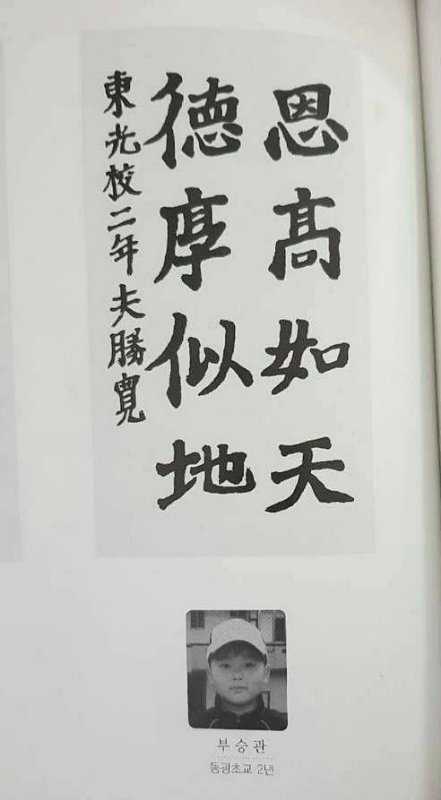 恩高如天
德厚似地
東光校二年 夫勝寬
부승관
동광초교 2년